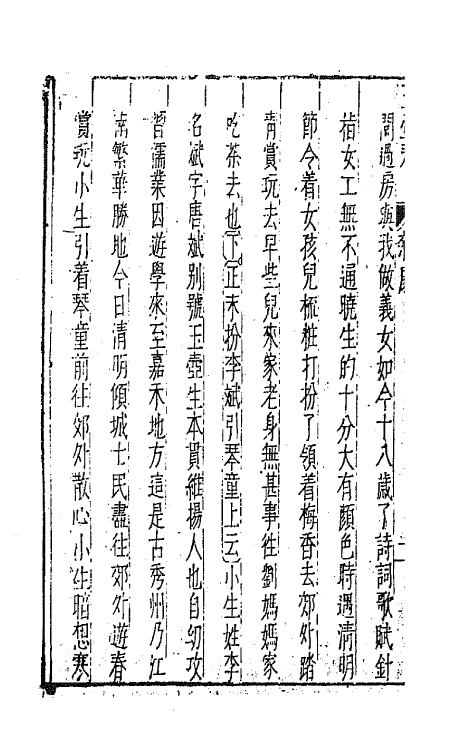 間過房與我做義女如今十八歲了詩詞歌賦針
指女工無不通曉生的十分大有顏色時遇清明
節令着女孩兒梳粧打扮了領着梅香去郊外踏
靑賞玩去早些兒來家老身無甚事往劉媽媽家
吃茶去也下正末扮李斌引琴童上云小生姓李
名斌字唐斌别號玉壺生本貫維揚人也自幼攻
習儒業因遊學來至嘉禾地方這是古秀州乃江
南繁華勝地今日清明傾城士民盡往郊外遊春
賞玩小生引着琴童前往郊外散心小生暗想寒